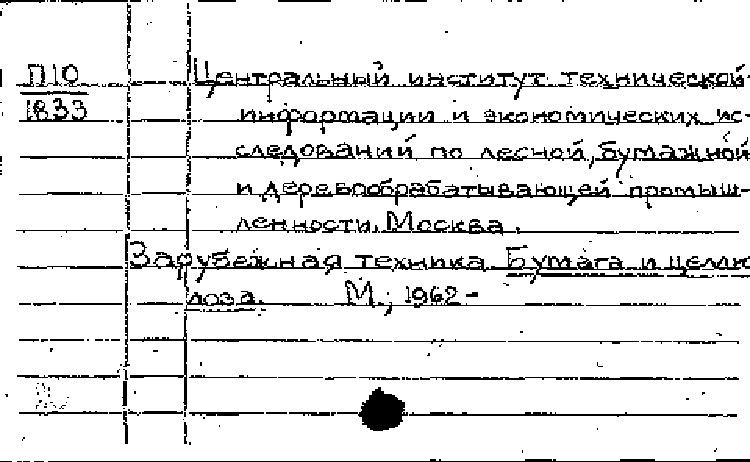 П10
1833
Центральный институт технической
информации и экономических ис-
следований по лесной, бумажной
и деревообрабатывающей промыш-
ленности. Москва.
Зарубежная техника. Бумага и целлю
лоза. М., 1962-